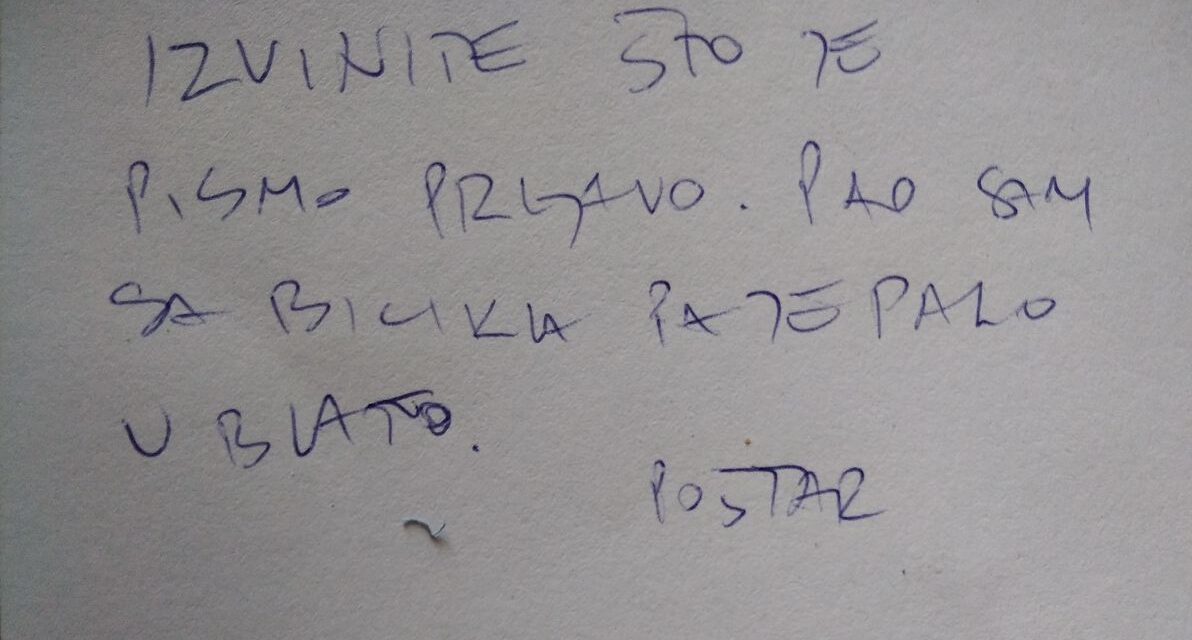 IZVINITE ŠTO JE
PISMO PRLJAVO. PAO SAM
SA BICIKLA PA JE PALO
U BLATO.
POŠTAR